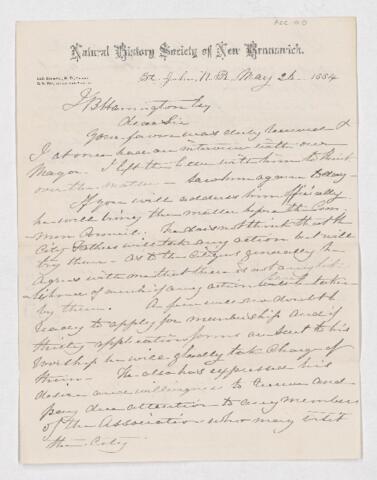 Natural History Society of New Brunswick.
St. John, N.B. May 26. 1884
Esq
Dear Sir
Your favor was duly received &
I at once had an interview with our
Mayor. I left the letter with him to think
over the matter — saw him again to day—
If you will address him officially
he will bring the matter before the Com-
mon Council. He does not think that the
City Fathers will take any action but will
try them — as to the Citizens generally he
agrees with me that there is not a
of much if any action being taken
by them. A few will no doubt be
ready to apply for membership and if
thirty application forms are sent to his
Worship he will gladly take charge of
them — He also has expressed his
desire and willingness to receive and
pay due attention to any members
of the Association who may visit
the City